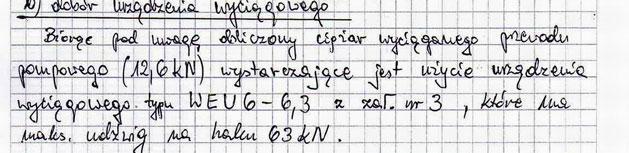 10) dobór urządzenia wyciągowego
Biorąc pod uwagę obliczony ciężar wyciąganego przewodu
pompowego (12,6 kN) wystarczające jest użycie urządzenia
wyciągowego typu WEU 6 - 6,3 z zał. nr 3 , które ma
maks. udźwig na haku 63 kN.